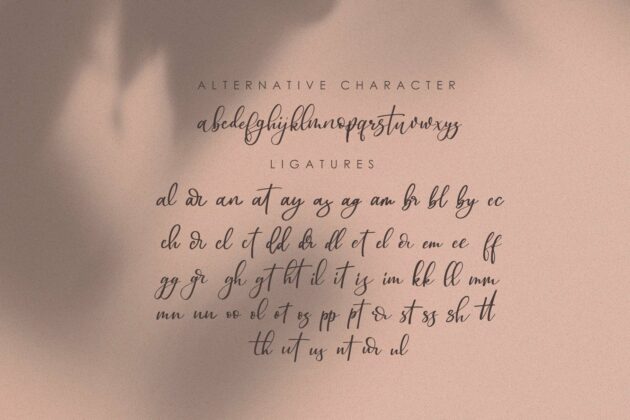 ALTERNATIVE CHARACTER
abcdefghijklmnopqrstuvwxyz
LIGATURES
al ar an at ay as ag am br bl by cc
ch cr cl ct dd dr dl et el er em ee ff
gg gr gh gt ht il it is im kk ll mm
mn nn oo ol ot os pp pt rr st ss sh tt
th ut us nt ur ul